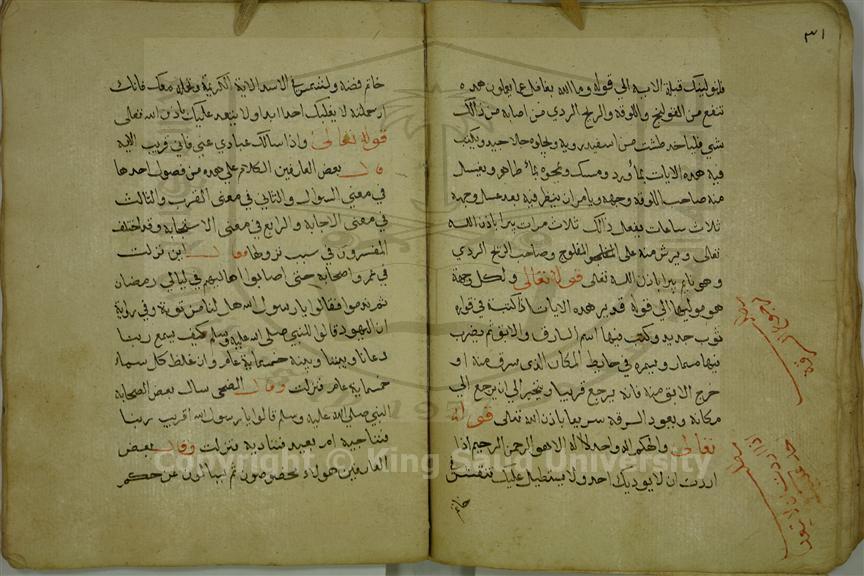 ٣١
فلنولينك قبلة الايه الي قوله وما الله بغافل عما يعملون هده
تنفع من القولنج واللوقه والريح الردي فمن اصابه من ذالك
شي فلياخد طشت من اسفيدرويه ويجلوه جلا جيد ويكتب
فيه هده الايات بماورد ومسك ويمحوه بماء طاهر ويغسل
منه صاحب اللوقه وجهه ويامر ان ينظر فيه بعد غسل وجهه
ثلاث ساعات يفعل ذالك ثلاث مرات يبرا باذن الله
تعالى ويرش منه على المفلوج وصاحب الريح الردي
وهو نايم يبرا باذن الله تعالى قوله تعالى ولكل وجهة
هو موليها الي قوله قدير هده الايات اذا كتبت في قواره
ثوب جديد وكتب فيها اسم السارق والابق ثم يضرب
فيها مسمار ويسمره في حايط المكان الدي سرق منه او
خرج الابق منه فانه يرجع قريبا ويتحير الي ان يرجع الي
مكانه ويعود السرقه سريعا باذن الله تعالى قوله
تعالى والهكم اله واحد لا اله الا هو الرحمن الرحيم اذا
اردت ان لا يوديك احد ولا يستطيل عليك فتنقش في
خاتم
خاتم فضه ولشمس في الاسد الاية الكريمة وتجعله معك فانك
ارسلته لا يغلبك احدا ابدا ولا يتعد عليك باذن الله تعالى
قوله تعالى واذا سالك عبادي عني فاني قريب الايه
قال بعض العارفين الكلام على هده من فصول احدها
في معنى السوال والثاني في معنى القرب والثالث
في معنى الاجابه والرابع في معنى الاستجابه وقد اختلف
المفسرون في سبب نزولها وقال ابن نزلت
في عمر واصحابه حتى اصابوا اهاليهم في ليالي رمضان
ثم ندموا فقالوا يا رسول الله هل لنا من توبة وفي رواية
ان اليهود قالوا للنبي صلى الله عليه وسلم كيف يسمع ربنا
دعانا وبيننا وبينه خمسماية عام وان غلظ كل سماء
خمسماية عام فنزلت وقال الضحى سال بعض الصحابه
النبي صلى الله عليه وسلم قالوا يا رسول الله اقريب ربنا
فنناجيه ام بعيد فنناديه فنزلت وقال بعض
العارفين هولاء مخصوصون ثم ليسالون عن حكم
Copyright © King Saud University